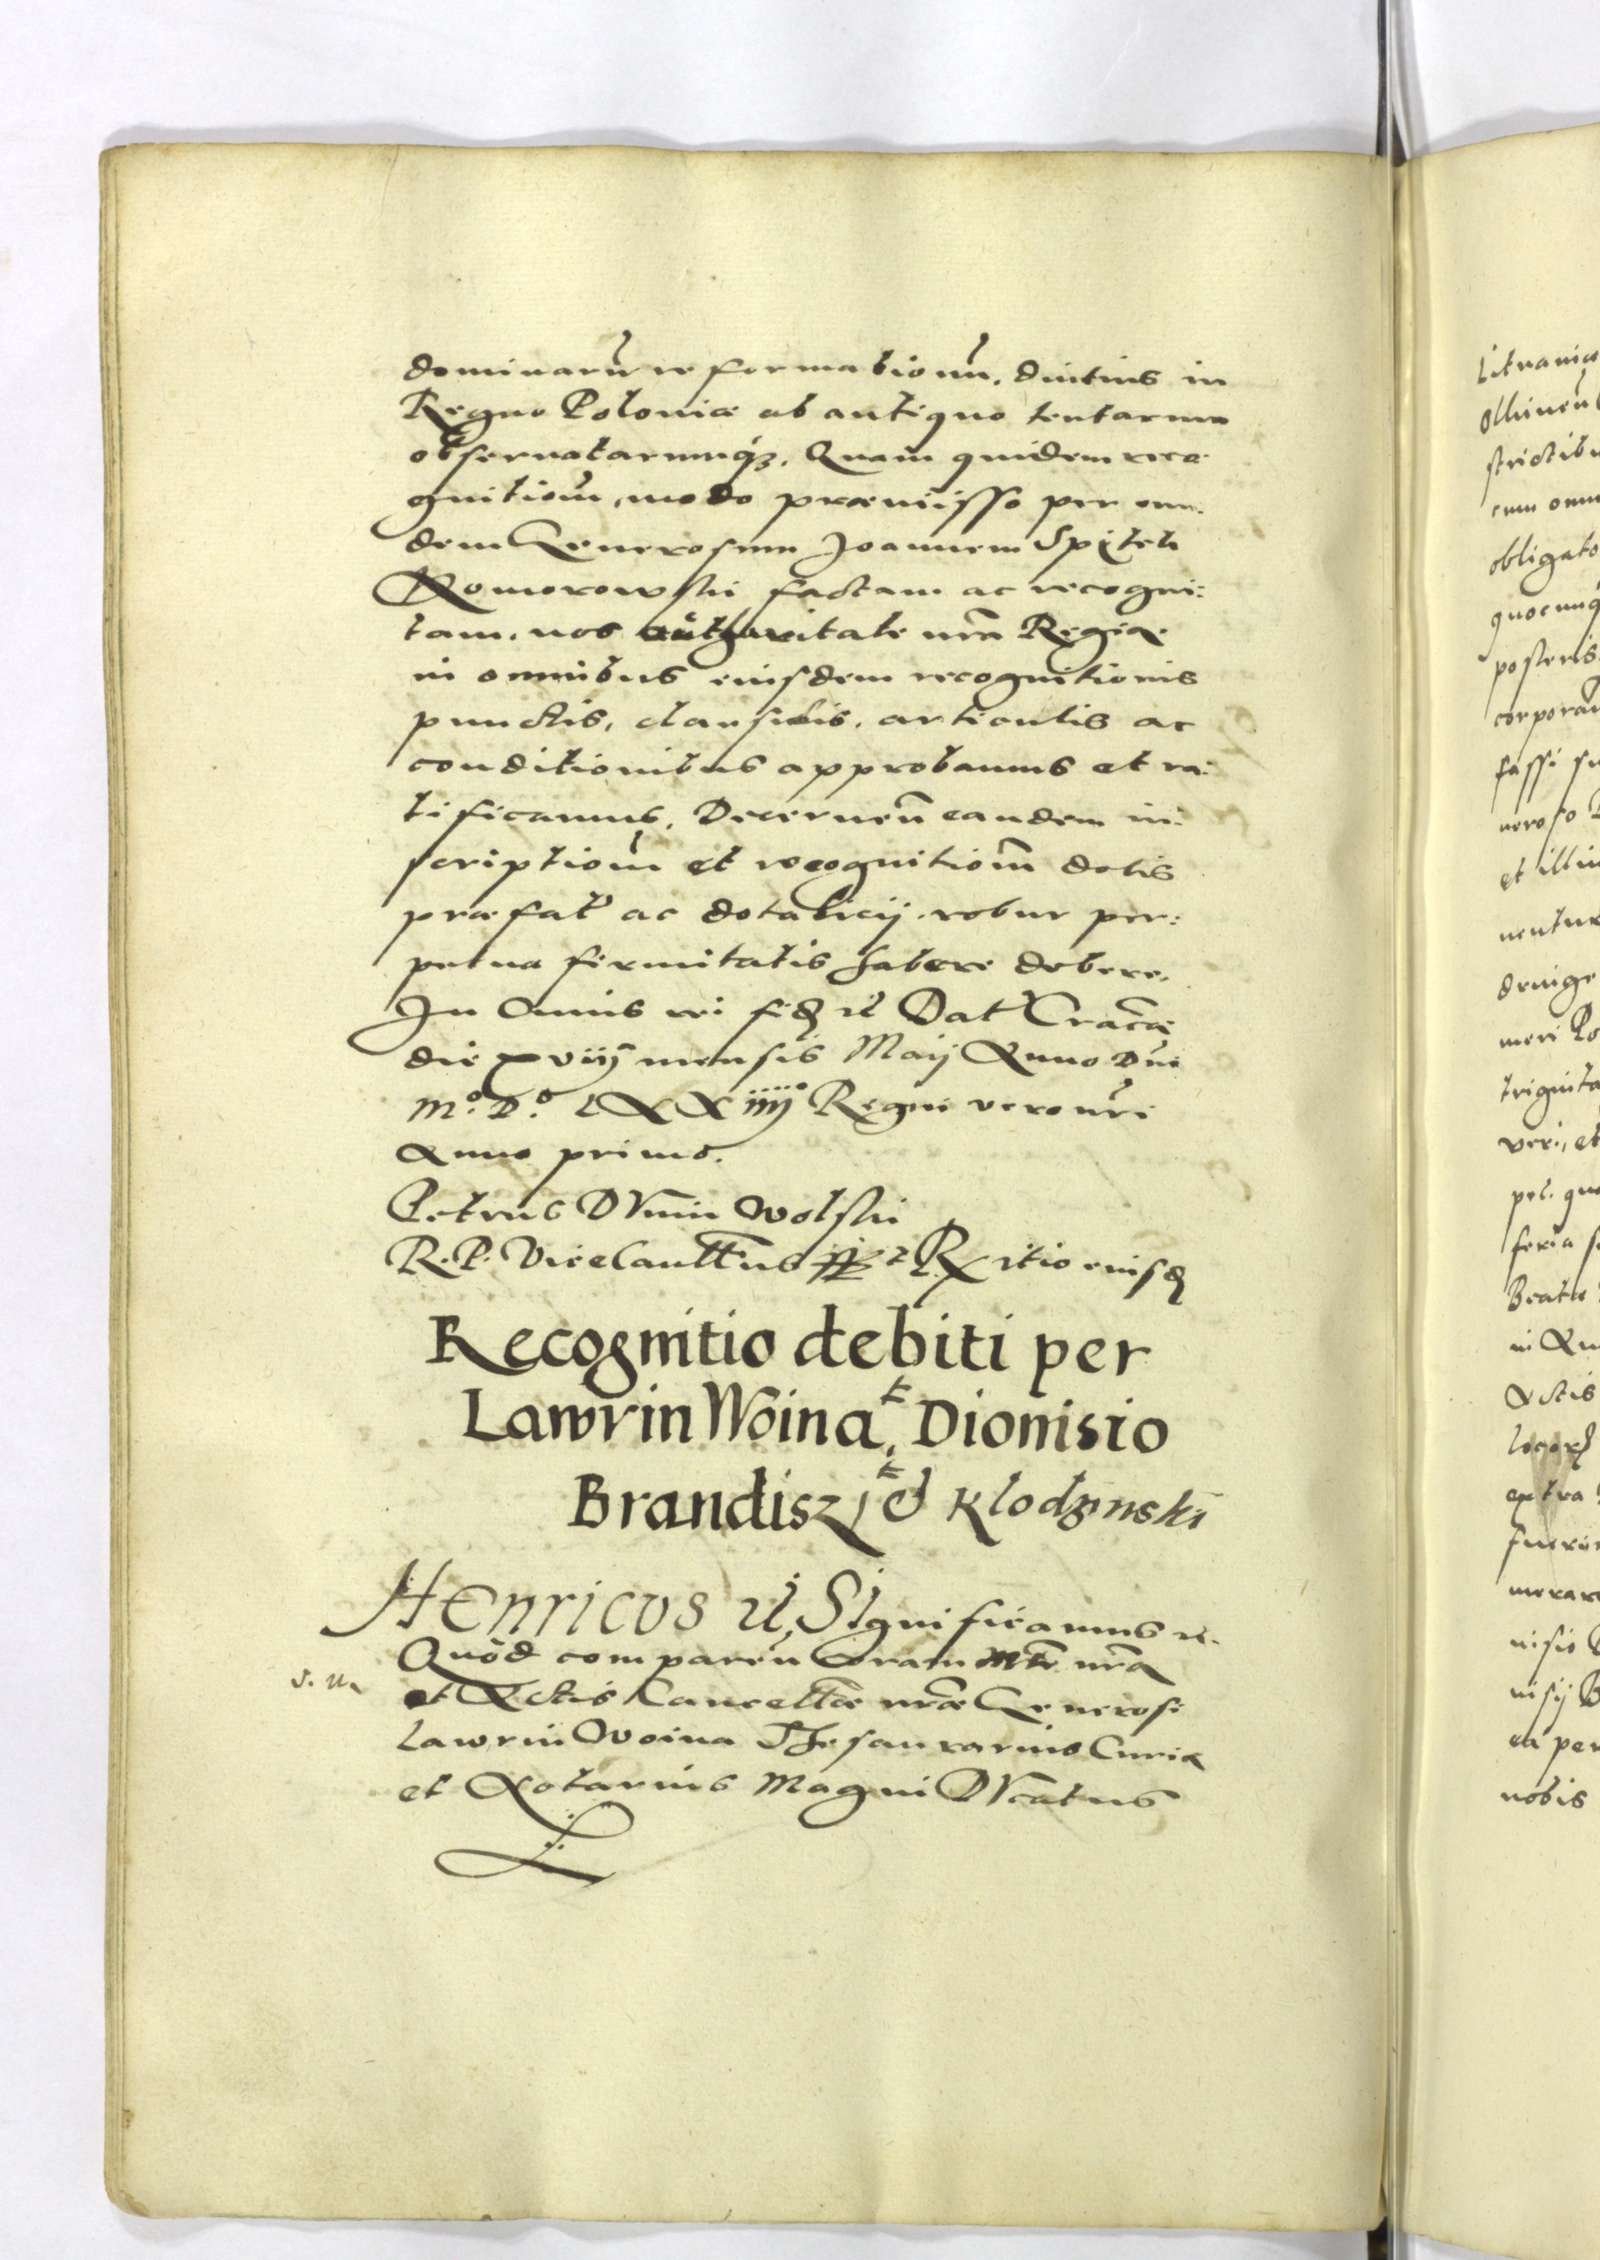 dominarum reformationum, diutius in
Regno Poloniæ ab antiquo tentarum
obseruatarumq3. Quam quidem reco
gnitiom, modo præmisso per eun.
dem Generosum Joannem Spÿtek
Komorowski factam ac recogni:
tam, nos authoritate nrã Regiæ
in omnibus eiusdem recognitionis
punctis, clausulis, articulis ac
conditionibus approbamus et ra:
tificamus, Decernen̄ eandem in:
scriptiom̄ et recognitiom̄ dotis
præfat ac dotalicij robur per:
petuæ firmitatis habere debere.
In Cuius rei fid Dat Cracæ
die xviij mensis Maij Anno Dni
M.º D.º LXXiiijº Regni vero nri
Anno primo.
Petrus Dunin Wolski
R. P. Vicecancell̄us eiusd
Recognitio debiti per
Lawrin Woina, Dionisio
Brandisz, et Klodzinski
Henricus Significamus
Quod comparen̄ Coram Mte nrã
et Actis Cancell̄æ nræ Generosi
Lawrin Woina Thesaurarius Curiæ
et Notarius Magni Ducatus
L
Lituaniæ
strictibu
cum omn
obligato
quocunq
posteris
corporal
fassi su
neroso
et illiu
uentur
meri Po
triginta
veri, et
pol. qu
feria s
Beatæ
in
Actis
extra
fueri
nisio
nisij B
ea per
nobis